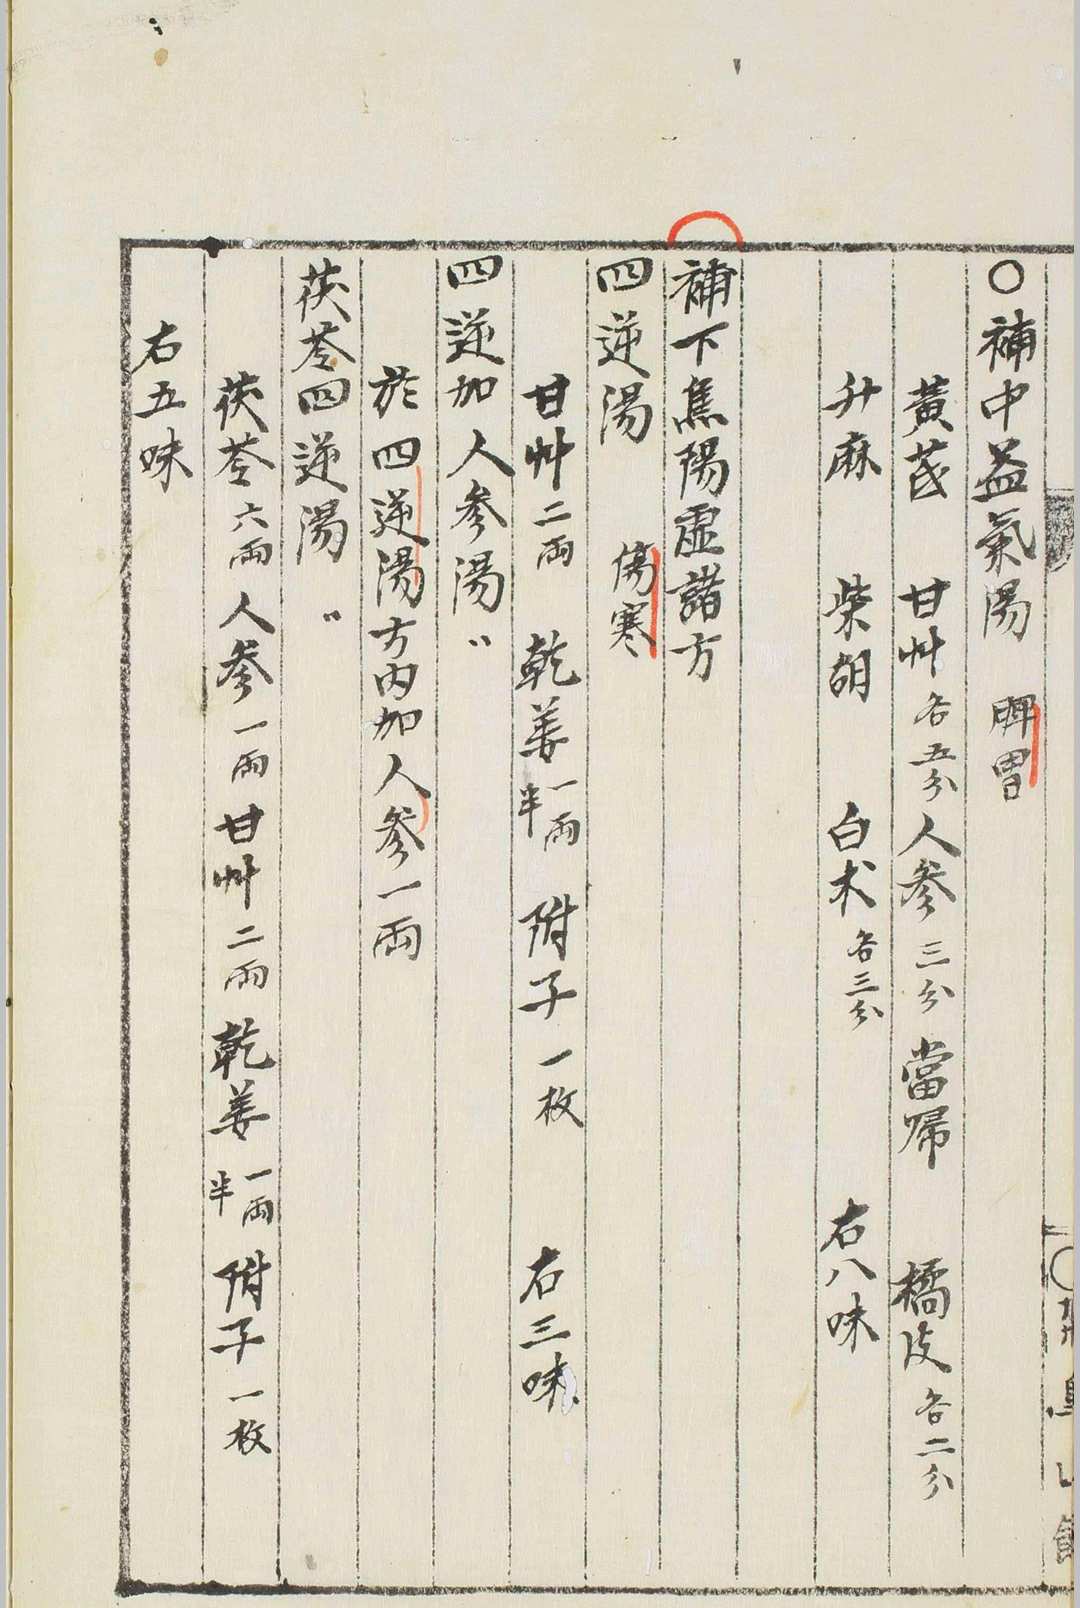 〇補中益氣湯　脾胃
黃芪　甘艸各五分　人參三分　當帰　橘皮各二分
升麻　柴胡　白朮各三分　右八味
補下焦陽虛諸方
四逆湯　傷寒
甘艸二両　乾姜一両半　附子一枚　右三味
四逆加人參湯〃
於四逆湯方內加人參一両
茯苓四逆湯〃
茯苓六両　人參一両　甘艸二両　乾姜一両半　附子一枚
右五味